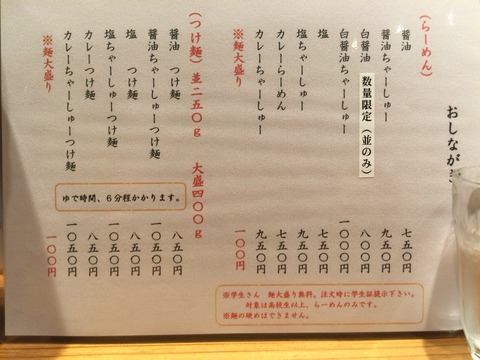 おしながき
(らーめん)
醤油 七五〇円
醤油ちゃーしゅー 九五〇円
白醤油 数量限定(並のみ) 八〇〇円
白醤油ちゃーしゅー 一〇〇〇円
塩 七五〇円
塩ちゃーしゅー 九五〇円
カレーらーめん 七五〇円
カレーちゃーしゅー 九五〇円
※麺大盛り 一〇〇円
(つけ麺) 並二五〇g 大盛四〇〇g
醤油 つけ麺 八五〇円
醤油ちゃーしゅーつけ麺 一〇五〇円
塩 つけ麺 八五〇円
塩ちゃーしゅーつけ麺 一〇五〇円
カレーつけ麺 八五〇円
カレーちゃーしゅーつけ麺 一〇五〇円
※麺大盛り 一〇〇円
ゆで時間、6分程かかります。
※学生さん 麺大盛り無料。注文時に学生証提示下さい。
対象は高校生以上、らーめんのみです。
※麺の硬めはできません。